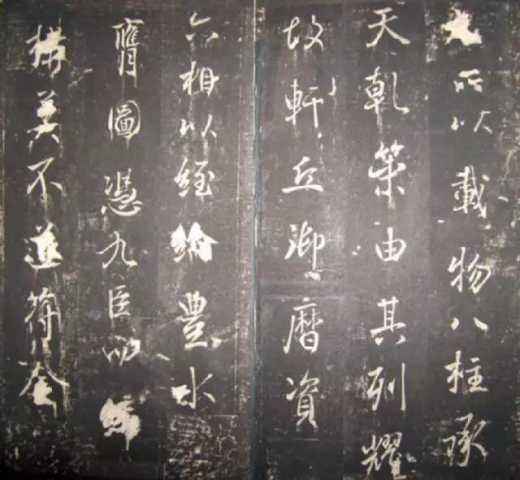 所以載物八柱承
天乾策由其列耀
故軒丘御曆資
六相以經綸豊水
膺圖憑九臣而
美不符